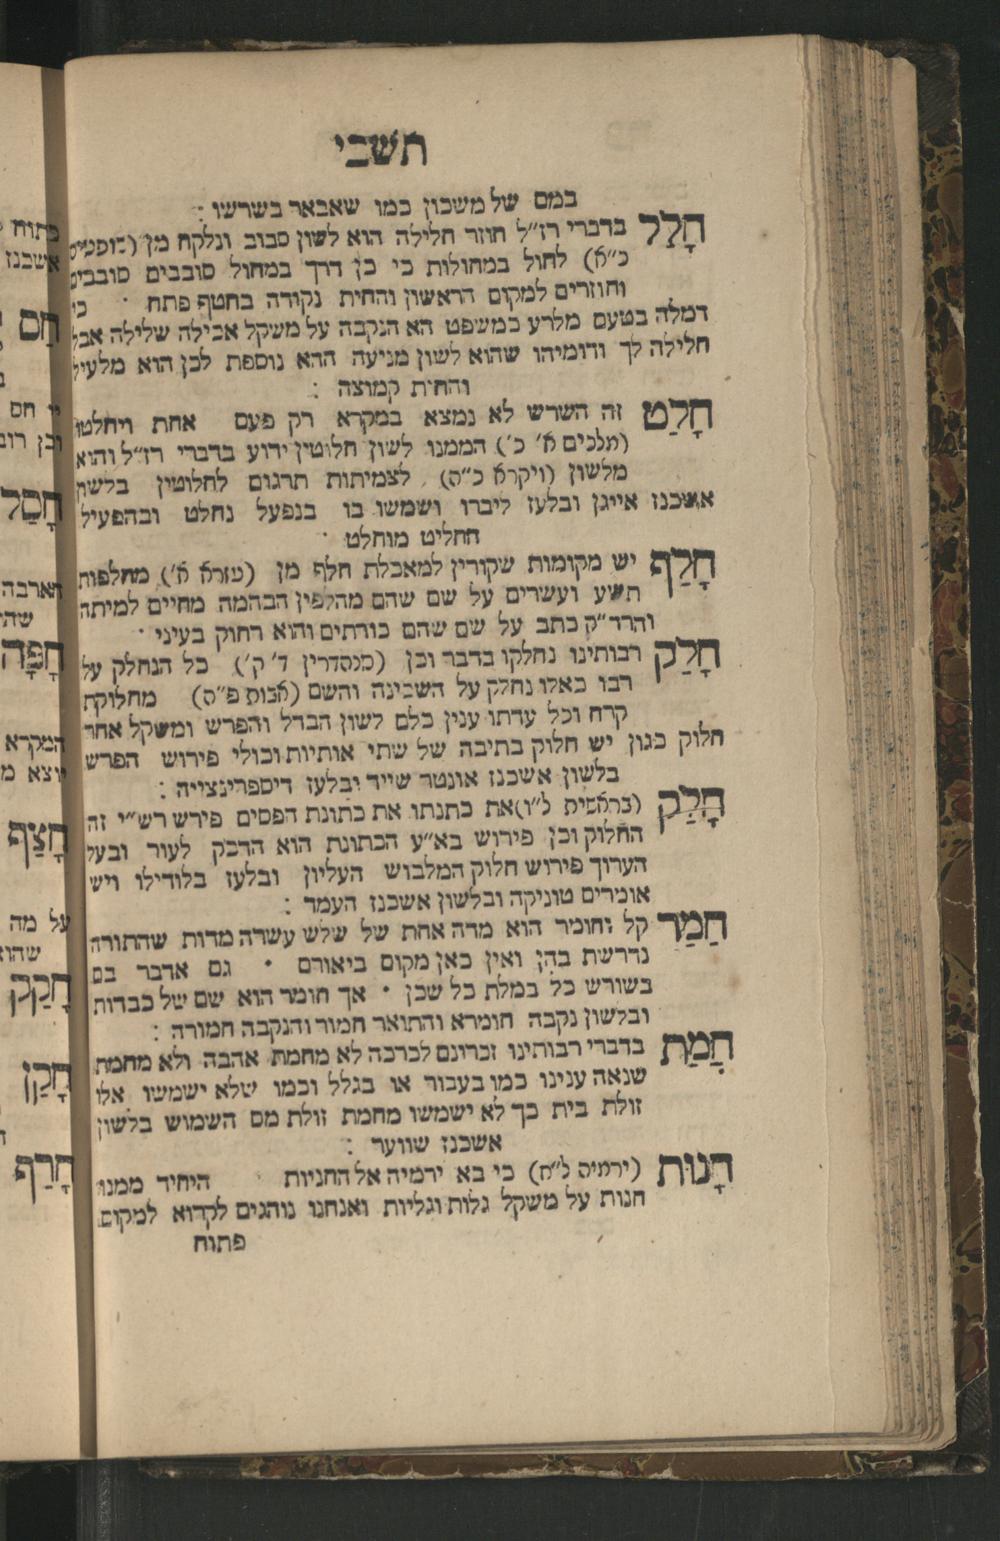 תשבי
במם של משכון כמו שאבאר בשרשו :
חָלַל בדברי רז״ל חוזר חלילה הוא לשון סבוב ונלקח מן (שופטים
כ״א) לחול במחולות כי כן דרך במחול סובבים סובבים
וחוזרים למקום הראשון והחית נקודה בחטף פתח · כי
דמלה בטעם מלרע כמשפט הא הנקבה על משקל אבילה שלילה אבל
חלילה לך ודומיהו שהוא לשון מניעה ההא נוספת לכן הוא מלעיל
והחית קמוצה :
חָלַט זה השרש לא נמצא במקרא רק פעם אחת ויחלטו
(מלכים א׳ כ׳) הממנו לשון חלוטין ידוע בדברי רז״ל והוא
מלשון (ויקרא כ״ה) לצמיתות תרגום לחלוטין בלשון
אשכנז אייגן ובלעז ליברו ושמשו בו בנפעל נחלט ובהפעיל
החליט מוחלט ·
חָלַף יש מקומות שקורין למאכלת חלף מן (עזרא א׳) מחלפות
תשע ועשרים על שם שהם מהלפין הבהמה מחיים למיתה
והרד״ק כתב על שם שהם כורתים והוא רחוק בעיני ·
חָלַק רבותינו נחלקו בדבר וכן (סנהדרין ד׳ ק׳) כל הנחלק על
רבו כאלו נחלק על השכינה והשם (אבות פ״ה) מחלוקת
קרח וכל עדתו ענין כלם לשון הבדל והפרש ומשקל אחר
חלוק כגון יש חלוק בתיבה של שתי אותיות וכולי פירוש הפרש
בלשון אשכנז אונטר שייד ובלעז דיספרינצייה :
חָלַק (בראשית ל״ז) את כתנתו את כתונת הפסים פירש רש״י זה
החלוק וכן פירוש בא״ע הכתונת הוא הדבק לעור ובעל
הערוך פירוש חלוק המלבוש העליון ובלעז בלודילו ויש
אומרים טוניקה ובלשון אשכנז העמד :
חַמַר קל וחומר הוא מדה אחת של שלש עשרה מדות שהתורה
נדרשת בהן ואין כאן מקום ביאורם · גם אדבר בם
בשורש כל במלת כל שכן · אך חומר הוא שם של כבדות
ובלשון נקבה חומרא והתואר חמור והנקבה חמורה :
חֲמַת בדברי רבותינו זכרונם לברכה לא מחמת אהבה ולא מחמת
שנאה ענינו כמו בעבור או בגלל וכמו שלא ישמשו אלו
זולת בית כך לא ישמשו מחמת זולת מם השמוש בלשון
אשכנז שווער :
חָנוּת (ירמיה ל״ח) כי בא ירמיה אל החניות · היחיד ממנו
חנות על משקל גלות וגליות ואנחנו נוהגים לקרוא למקום
פתוח
פתוח
אשכנז
חַם
חם
וכן
חָסַל
הארבה
שהי
חָפָּה
המקרא
יוצא
חָצַף
על מה
שהוא
חָקַק
חָקַן
חָרַף